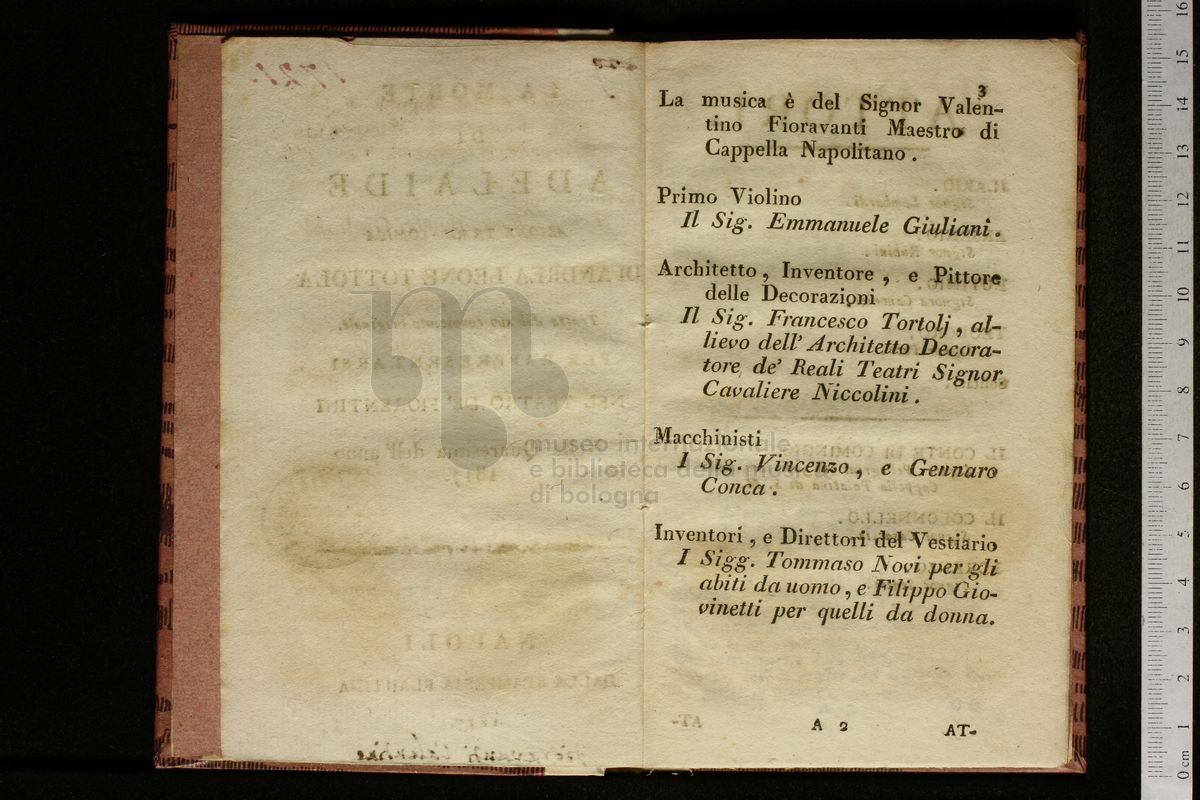 3
La musica è del Signor Valen-
tino Fioravanti Maestro di
Cappella Napolitano.
Primo Violino
Il Sig. Emmanuele Giuliani.
Architetto, Inventore, e Pittore
delle Decorazioni
Il Sig. Francesco Tortolj, al-
lievo dell' Architetto Decora-
tore de' Reali Teatri Signor
Cavaliere Niccolini.
Macchinisti
I Sig. Vincenzo, e Gennaro
Conca.
Inventori, e Direttori del Vestiario
I Sigg. Tommaso Novi per gli
abiti da uomo, e Filippo Gio-
vinetti per quelli da donna.
A 2 AT-
museo internazionale
e biblioteca della musica
di bologna
0 cm 1 2 3 4 5 6 7 8 9 10 11 12 13 14 15 16